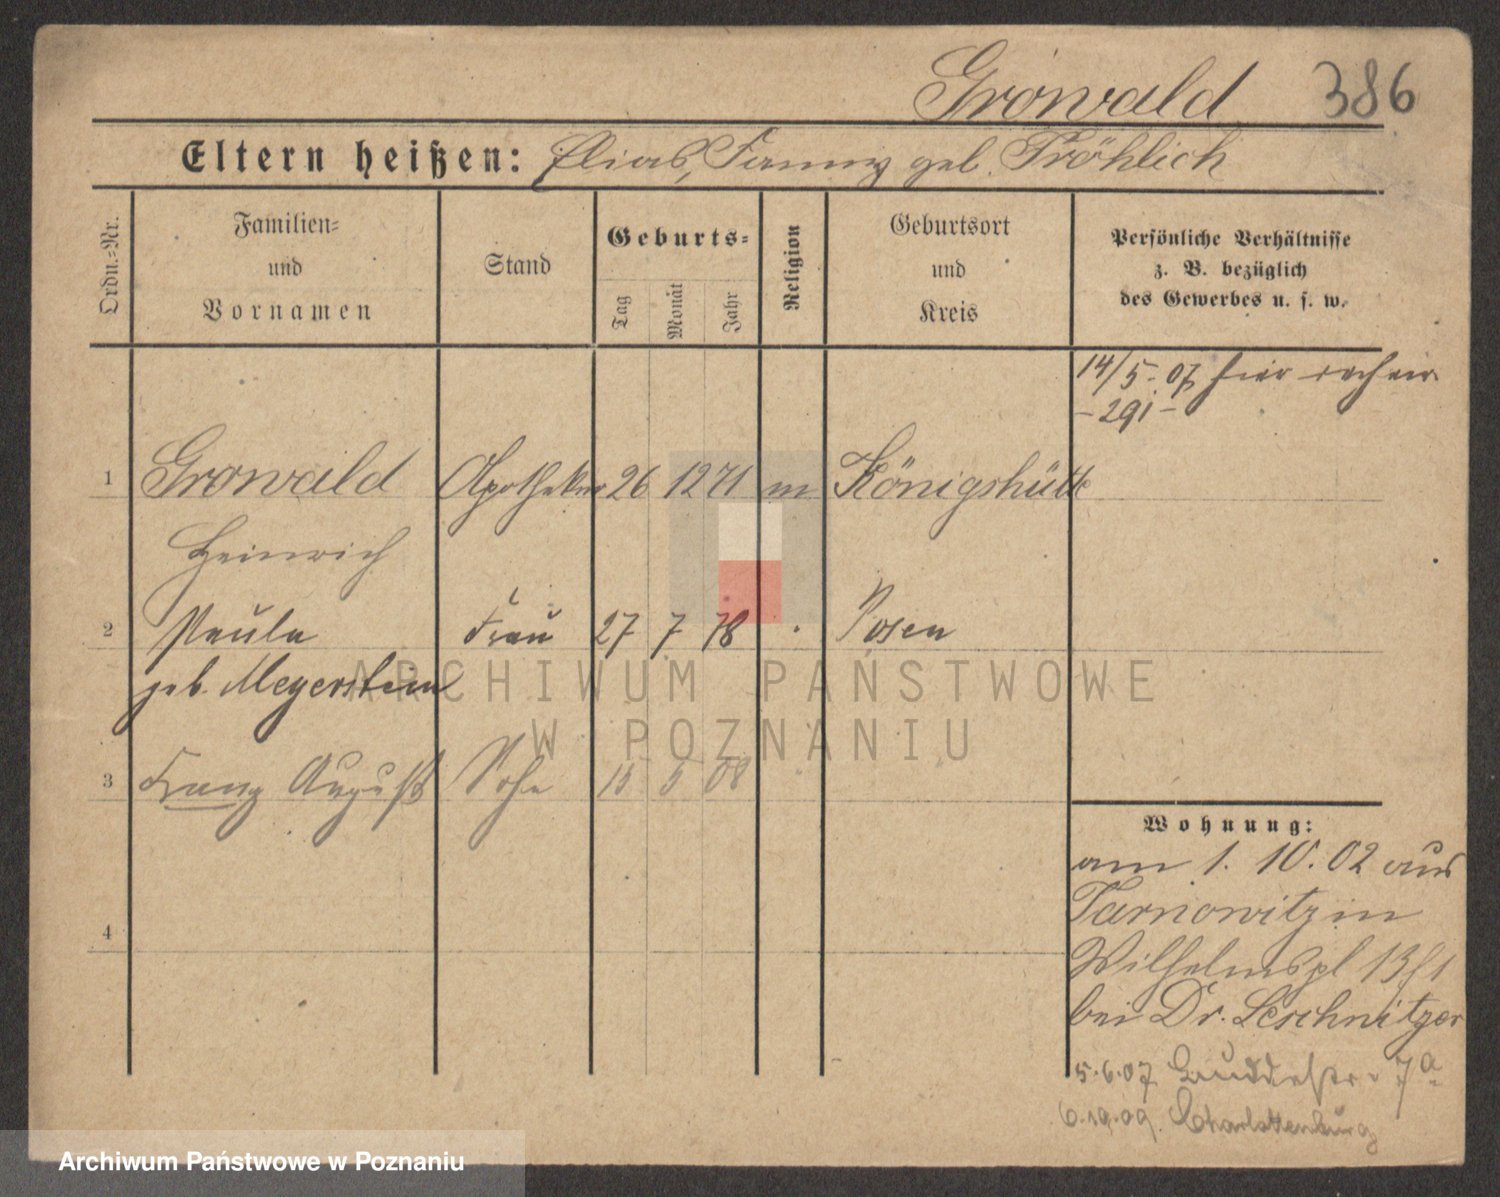 Growald 386
Eltern heißen: Elias, Fanny geb. Fröhlich
Ordn.-Nr.
Familien-
und
Vornamen
Stand
Geburts-
Tag
Monat
Jahr
Religion
Geburtsort
und
Kreis
Persönliche Verhältnisse
z. B. bezüglich
des Gewerbes u. s. w.
14/5. 07 hier
- 291 -
1 Growald Apotheker 26 12 71 m Königshütte
Heinrich
2 Paula Frau 27 7 78 Posen
geb. Meyerstein
3 Franz August Sohn 08
4
Wohnung:
am 1. 10. 02 aus
Tarnowitz in
Wilhelmspl 13/1
bei Dr. Leschnitzer
5.6.07 7a
6.10.09. Charlottenburg
ARCHIWUM PAŃSTWOWE
W POZNANIU
Archiwum Państwowe w Poznaniu